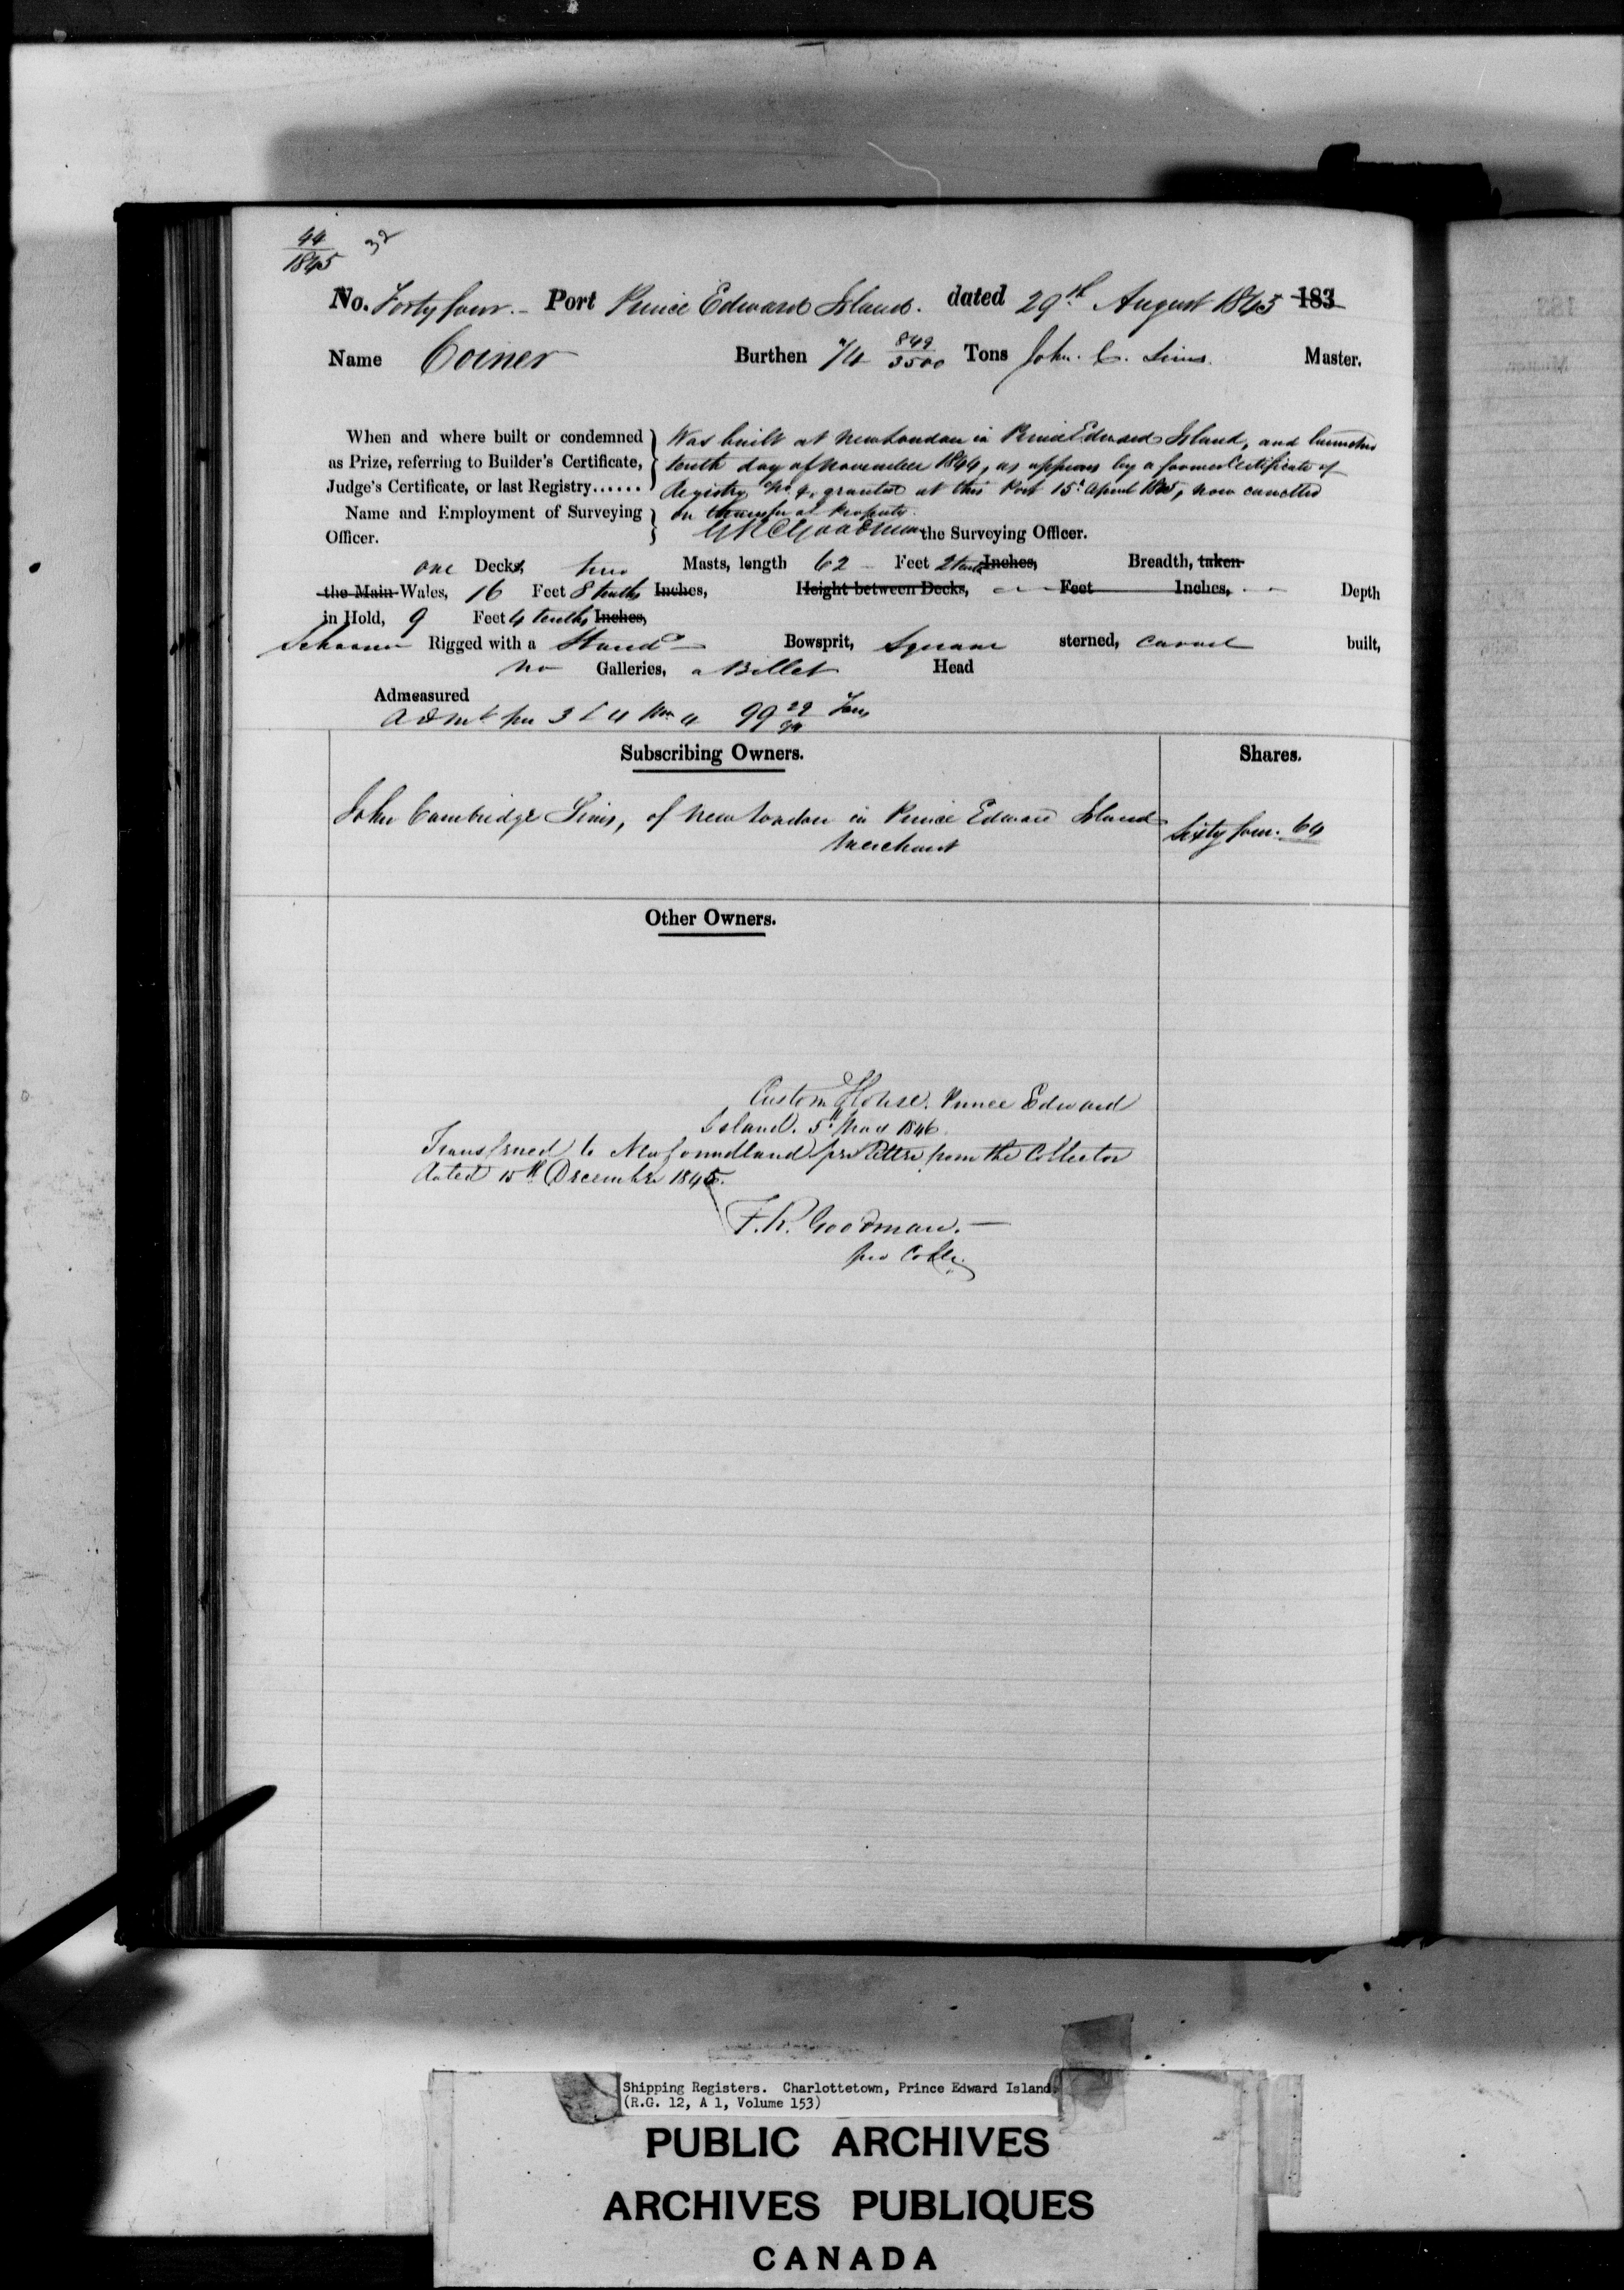 44
1845
32
No. Forty four. - Port Prince Edward Island. dated 29th August 1845 183
Name Coiner Burthen 74 849/3500 Tons John. C. Sims. Master.
When and where built or condemned
as Prize, referring to Builder's Certificate,
Judge's Certificate, or last Registry......
Was built at New London in Prince Edward Island, and launched
tenth day of November 1844, as appears by a former Certificate of
Registry No. granted at this Port 15th April 1845, now cancelled
on transfer of Property.
Name and Employment of Surveying
Officer.
Goodman the Surveying Officer.
one Decks, two Masts, length 62 Feet 2 tenths Inches, Breadth, taken
the Main Wales, 16 Feet 8 tenths Inches, Height between Decks, Feet Inches, Depth
in Hold, 9 Feet 4 tenths Inches,
Schooner Rigged with a Stand Bowsprit, Square sterned, Carvel built,
No Galleries, a Billet Head
Admeasured
Admt per 3 & 4 Wm 4 99 29/94 Tons
Subscribing Owners. Shares.
John Cambridge Sims, of New London in Prince Edward Island
Merchant
Sixty four. 64
Other Owners.
Custom House. Prince Edward
Island. 5th 1846.
Transferred to Newfoundland per Letter from the Collector
dated 15th December 1845.
F. R. Goodman. —
pro Collr.
Shipping Registers. Charlottetown, Prince Edward Island.
(R.G. 12, A 1, Volume 153)
PUBLIC ARCHIVES
ARCHIVES PUBLIQUES
CANADA